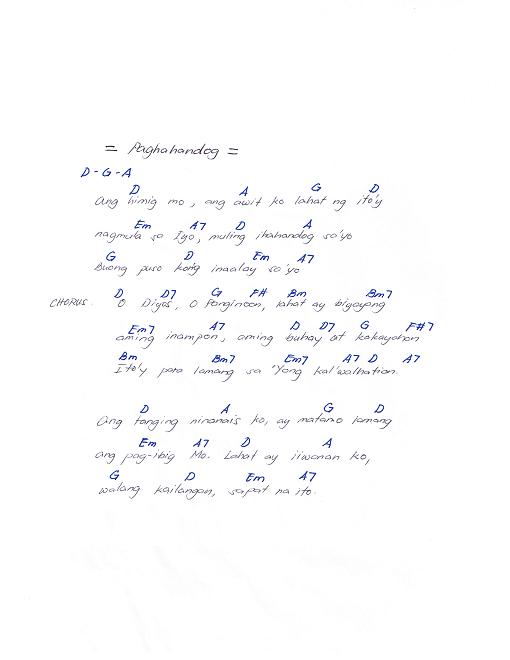 = Paghahandog =
D - G - A
D A G D
Ang himig mo, ang awit ko lahat ng ito'y
Em A7 D A
nagmula sa Iyo, muling ihahandog sa'yo
G D Em A7
Buong puso kong inaalay sa'yo
D D7 G F# Bm Bm7
CHORUS. O Diyos, O Panginoon, lahat ay biyayang
Em7 A7 D D7 G F#7
aming inampon, aming buhay at kakayahan
Bm Bm7 Em7 A7 D A7
Ito'y para lamang sa 'Yong kal'walhatian.
D A G D
Ang tanging ninanais ko, ay matamo lamang
Em A7 D A
ang pag-ibig Mo. Lahat ay iiwanan ko,
G D Em A7
walang kailangan, sapat na ito.